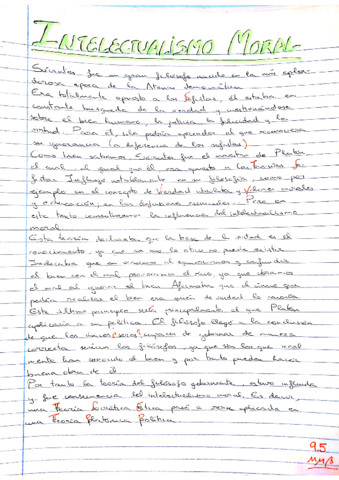 INTELECTUALISMO MORAL
Sócrates, fue un gran filósofo nacido en la más esplen-
dorosa época de la Atenas democrática.
Era totalmente opuesto a los Sofistas, él estaba en
constante búsqueda de la verdad y
sobre el bien humano, la justicia, la felicidad y la
virtud. Para él, sólo podría aprender el que reconociera
su ignorancia (a diferencia de los sofistas)
Como bien sabemos Sócrates fue el maestro de Platón
el cual al igual que él era opuesto a las Teorías So-
fistas. Influyó notablemente en su filosofía, como por
ejemplo en el concepto de Verdad absoluta y Valores morales
y educación, en las definiciones universales. Pero en
este texto comentaremos la influencia del intelectualismo
moral.
Esta teoría declaraba que la base de la virtud es el
conocimiento, y que sin uno lo otro no puede existir.
Indicaba que en cuanto al equivocarnos y confundir
el bien con el mal ya que obramos
el mal al ignorar el bien. Afirmaba que el único que
podría realizar el bien era quien de verdad lo conocía
Este último principio sería principalmente el que Platón
aplicaría a su política. El filósofo llegó a la conclusión
de que los únicos capaces de gobernar de manera
correcta serían los filósofos, ya que son los que real
mente han conocido el bien y por tanto pueden hacer
buena obra de él
Por tanto la teoría del filósofo gobernante, estuvo influida
y fue consecuencia del intelectualismo moral. Es decir,
una Teoría Socrática Ética pasó a verse aplicada en
una Teoría Platónica Política.
9.5